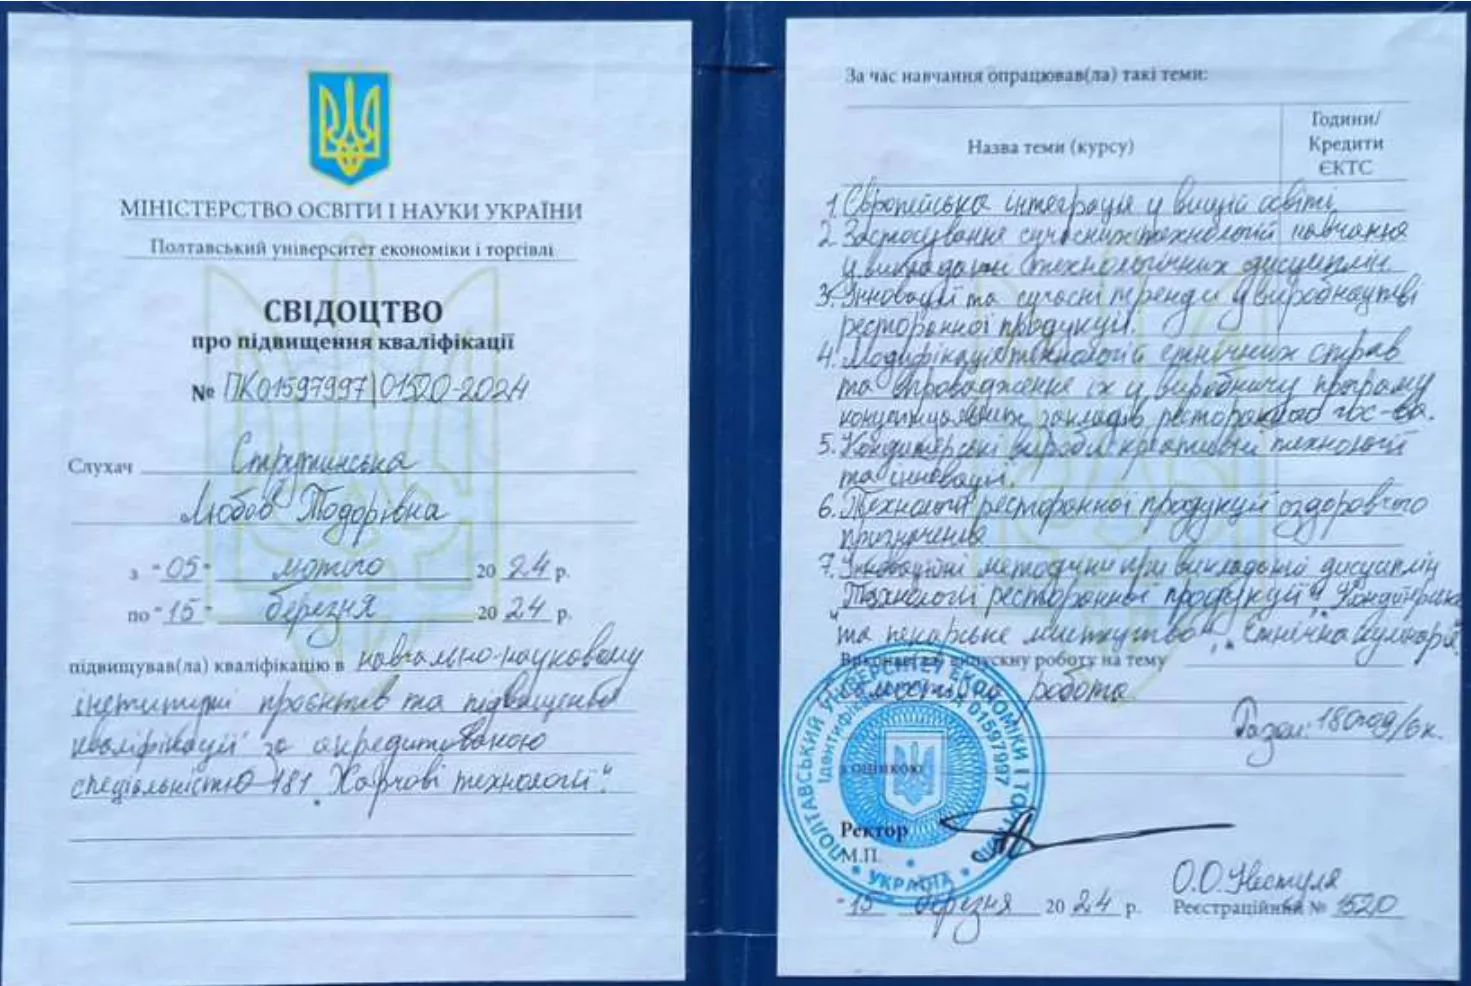 МІНІСТЕРСТВО ОСВІТИ І НАУКИ УКРАЇНИ
Полтавський університет економіки і торгівлі
СВІДОЦТВО
про підвищення кваліфікації
№ ПК01597997|01520-2024
Слухач Стружинська
Любов Тодорівна
з "05" лютого 2024 р.
по "15" березня 2024 р.
підвищував(ла) кваліфікацію в навчально-науковому
інституті проєктів та підвищення
кваліфікації за акредитованою
спеціальністю 181 „Харчові технології“.
За час навчання опрацював(ла) такі теми:
Назва теми (курсу)
Години/
Кредити
ЄКТС
1. Європейська інтеграція у вищій освіті
2. Застосування сучасних технологій навчання
у викладанні технологічних дисциплін.
3. Інновації та сучасні тренди у виробництві
ресторанної продукції.
4. Модифікація технологій етнічних страв
та впровадження їх у виробничу програму
концептуальних закладів ресторанного гос-ва.
5. Кондитерські вироби: креативні технології
та інновації.
6. Технології ресторанної продукції оздоровчого
призначення
7. Інноваційні методики при викладанні дисциплін
"Технології ресторанної продукції", "Кондитерське
та пекарське мистецтво", „Етнічна кулінарія".
Виконав(ла) випускну роботу на тему
самостійна робота
Разом: 180год/6к.
з оцінкою
Ректор
М.П.
О.О. Нестуля
"15" березня 2024 р.
Реєстраційний № 1520
ПОЛТАВСЬКИЙ УНІВЕРСИТЕТ ЕКОНОМІКИ І ТОРГІВЛІ
01597997
УКРАЇНА